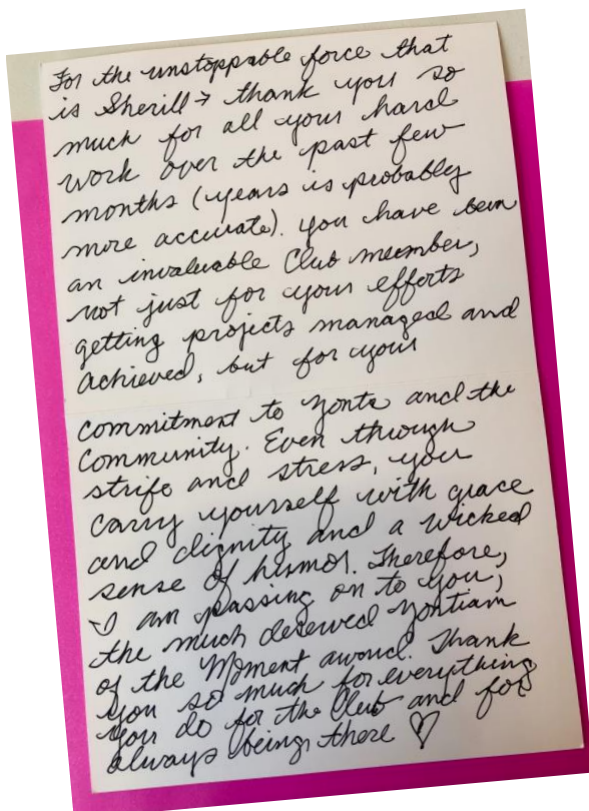 For the unstoppable force that
is Sherill → thank you so
much for all your hard
work over the past few
months (years is probably
more accurate). you have been
an invaluable Club member,
not just for your efforts
getting projects managed and
achieved, but for your
commitment to Zonta and the
Community. Even through
strife and stress, you
carry yourself with grace
and dignity and a wicked
sense of humor. Therefore,
I am passing on to you,
the much deserved Zontian
of the Moment award. Thank
you so much for everything
you do for the Club and for
always being there ♡